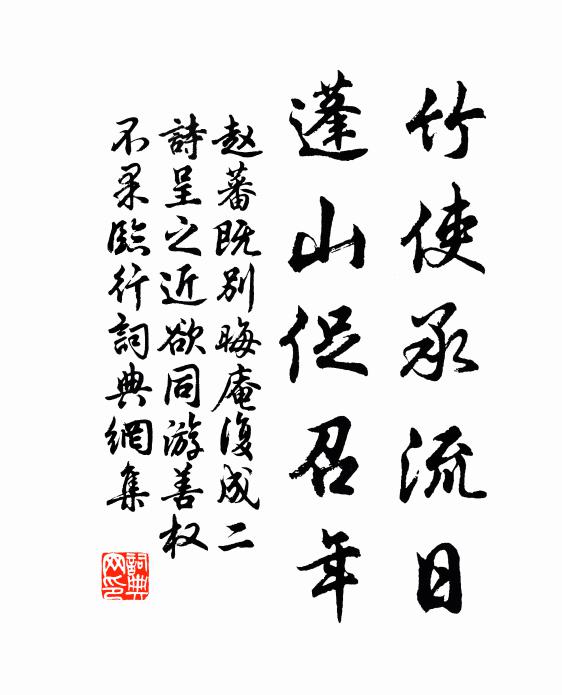 竹使承流日
蓬山促召年
赵蕃既别晦庵復成二
詩呈之近欲同游善权
不果臨行詞典網集
詞典
网印